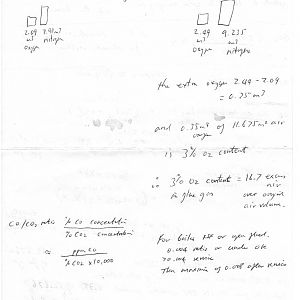 2.09 7.92m3
m3 nitrogen
oxygen
2.49 9.235
m3 m3
oxygen nitrogen
the extra oxygen 2.49 - 2.09
= 0.35m3
and 0.35m3 of 11.675m3 air
oxygen
is 3% O2 content
∴ 3% O2 content = 16.7 excess
in flue gas air
over oxygen
air volume.
CO/CO2 ratio % CO concentration
% CO2 concentration
ppm CO
% CO2 x 10,000
For boiler
0.004 ratio or under ok
70.008 service
Then maximum of 0.008 after service